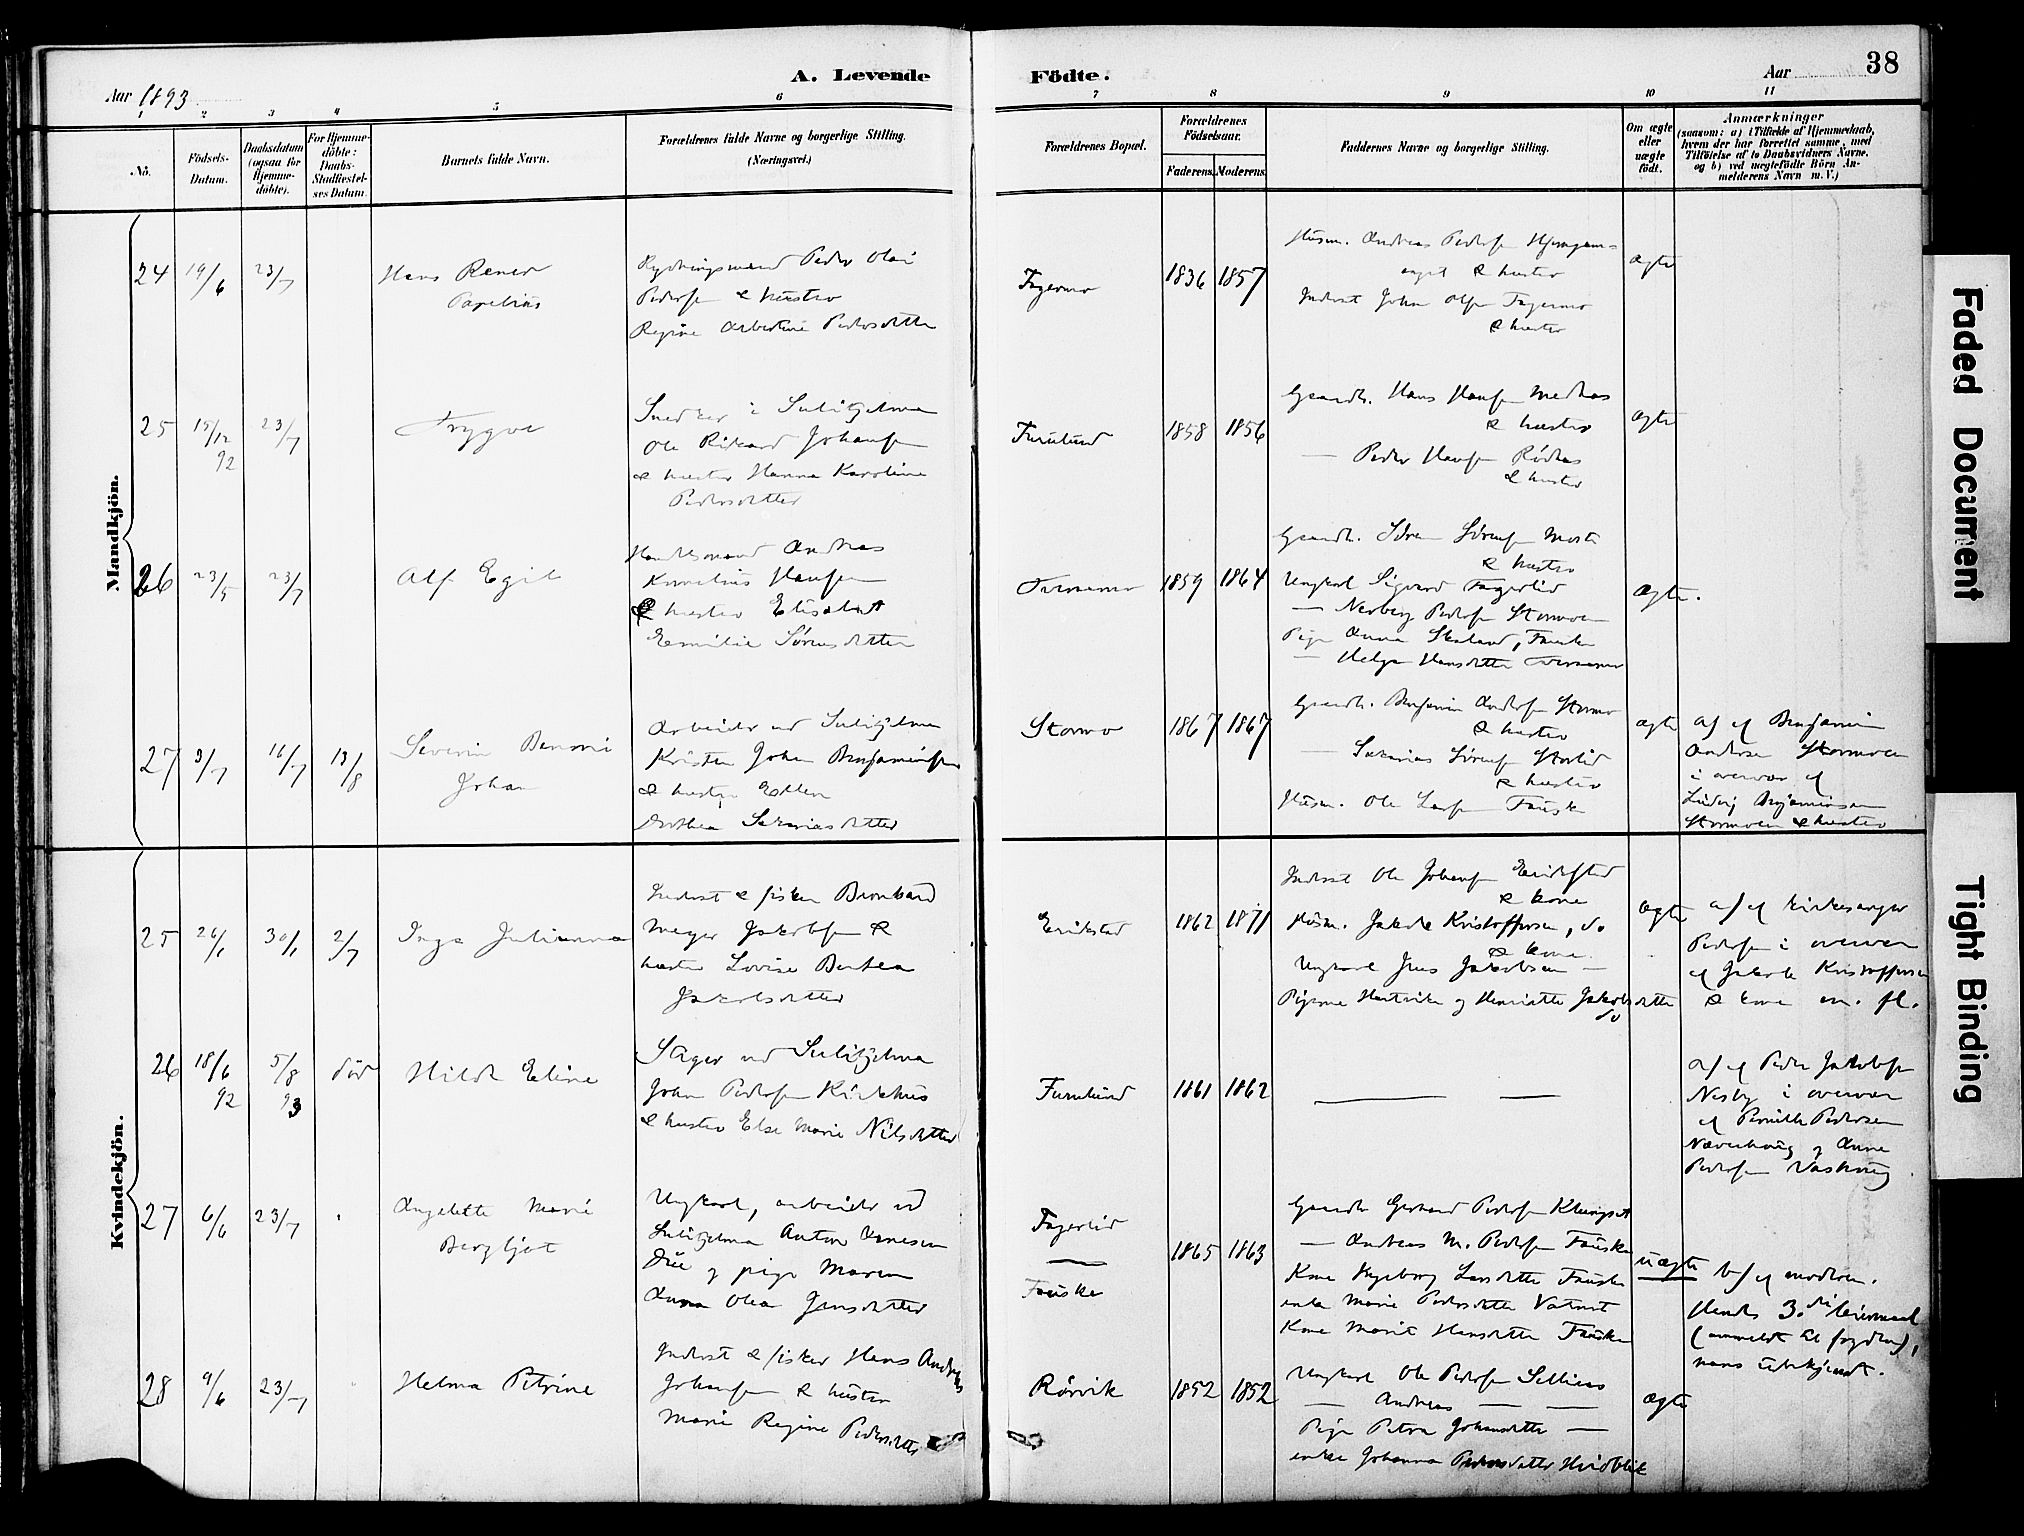 38
A. Levende Födte.
Aar 1893
Aar
1 2 3 4 5 6 7 8 9 10 11
No.
Födsels-Datum.
Daabsdatum (ogsaa for Hjemmedöbte).
For Hjemmedöbte: Daabs-Stadfæstelses Datum.
Barnets fulde Navn.
Forældrenes fulde Navne og borgerlige Stilling.
(Næringsvei.)
Forældrenes Bopæl.
Forældrenes Födselsaar.
Faderens. Moderens.
Faddernes Navne og borgerlige Stilling.
Om ægte eller uægte födt.
Anmærkninger
(saasom: a) i Tilfælde af Hjemmedaab,
hvem der har forrettet samme, med
Tilföielse af to Daabsvidners Navne,
og b) ved uægtefödte Börn Anmelderens Navn m. V.)
Mandkjön.
24 19/6 23/7
Hans Rener
Rydningsmand Peder Olai
Pedersen & hustru
Regine Albertine Pedersdatter
Fagermo
1836 1857
Husm. Andreas Pedersen
& hustru
Inderst Johan Olsen Fagermo
& hustru
ægte
25 15/12 92 23/7
Trygve
Snedker i Sulitjelma
Ole Rikard Johansen
& hustru Hanna Karoline
Pedersdatter
Furulund
1858 1856
Gaardb. Hans Hansen
& hustru
— Peder Hansen Rödaas
& hustru
ægte
26 23/5 23/7
Alf Egil
Handelsmand Andreas
Kornelius Hansen
& hustru Elisabet
Emilie Sørensdatter
Tveråmo
1859 1864
Gaardb. Sören Sörensen
& hustru
Ungkarl Sigvard Fagerlid
— Pedersen Stormoen
Pige Anna , Fauske
— Helga Hansdatter
ægte.
27 9/7 16/7 13/8
Severin
Johan
Arbeider ved Sulitjelma
Kristen Johan Benjaminsen
& hustru Ellen
Dorthea Sakariasdatter
Stormo
1867 1867
Gaardb. Benjamin Andersen Stormo
& hustru
— Sakarias Sörensen Storlid
& hustru
Husm. Ole Larsen Fauske
ægte
a) af Benjamin
Andersen Stormoen
i overvær af
Ludvig Benjaminsen
Stormoen & hustru
Kvindekjön.
25 26/1 30/1 2/7
Inga Julianna
Inderst & fisker Bernhard
Meyer Jakobsen &
hustru Lovise Bertea
Jakobsdatter
Erikstad
1862 1871
Inderst Ole Johansen Erikstad
& kone
Husm. Jakob Kristoffersen, do
& kone
Ungkarl Jens Jakobsen —
Pigerne og Henriette Jakobsdatter
do
ægte
a) af kirkesanger
Pedersen i overvær
af Jakob Kristoffersen
& kone m. fl.
26 18/6 92 5/8 93 död
Hilda Eline
Sager ved Sulitjelma
Johan Pedersen Kirkhus
& hustru Else Marie Nilsdatter
Furulund
1861 1862
— —
a) af Peder Jakobsen
Nesby i overvær
af Pernille Pedersen
og Anna
Pedersen
27 6/6 23/7
Marie
Bergljot
Ungkarl, arbeider ved
Sulitjelma Anton Arnesen
og pige Maren
Anna Olea Jensdatter
Fagerlid
—
Fauske
1865 1863
Gaardb. Gerhard Pedersen Klungset
— Andreas M. Pedersen Fauske
Kone Ingeborg Larsdatter Fauske
enke Marie Pedersdatter Vatnet
Kone Marit Hansdatter Fauske
uægte
b) af moderen.
Hendes 3.die leiermaal
(anmeldt til fogden),
hans ubekjendt.
28 9/6 23/7
Helma Petrine
Inderst & fisker Hans Andreas
Johansen & hustru
Marie Regine Pedersdatter
Rørvik
1852 1852
Ungkarl Ole Pedersen
— Andreas — —
Pige Petra Johansdatter —
enke Johanna Pedersdatter Hvidblik
ægte
Faded Document
Tight Binding